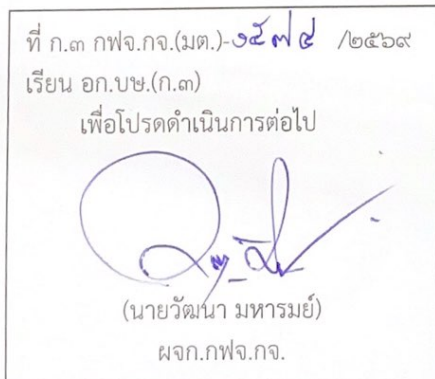 ที่ ก.๓ กฟจ.กจ.(มต.)-๑๕๗๔ /๒๕๖๙
เรียน อก.บษ.(ก.๓)
เพื่อโปรดดำเนินการต่อไป
(นายวัฒนา มหารมย์)
ผจก.กฟจ.กจ.